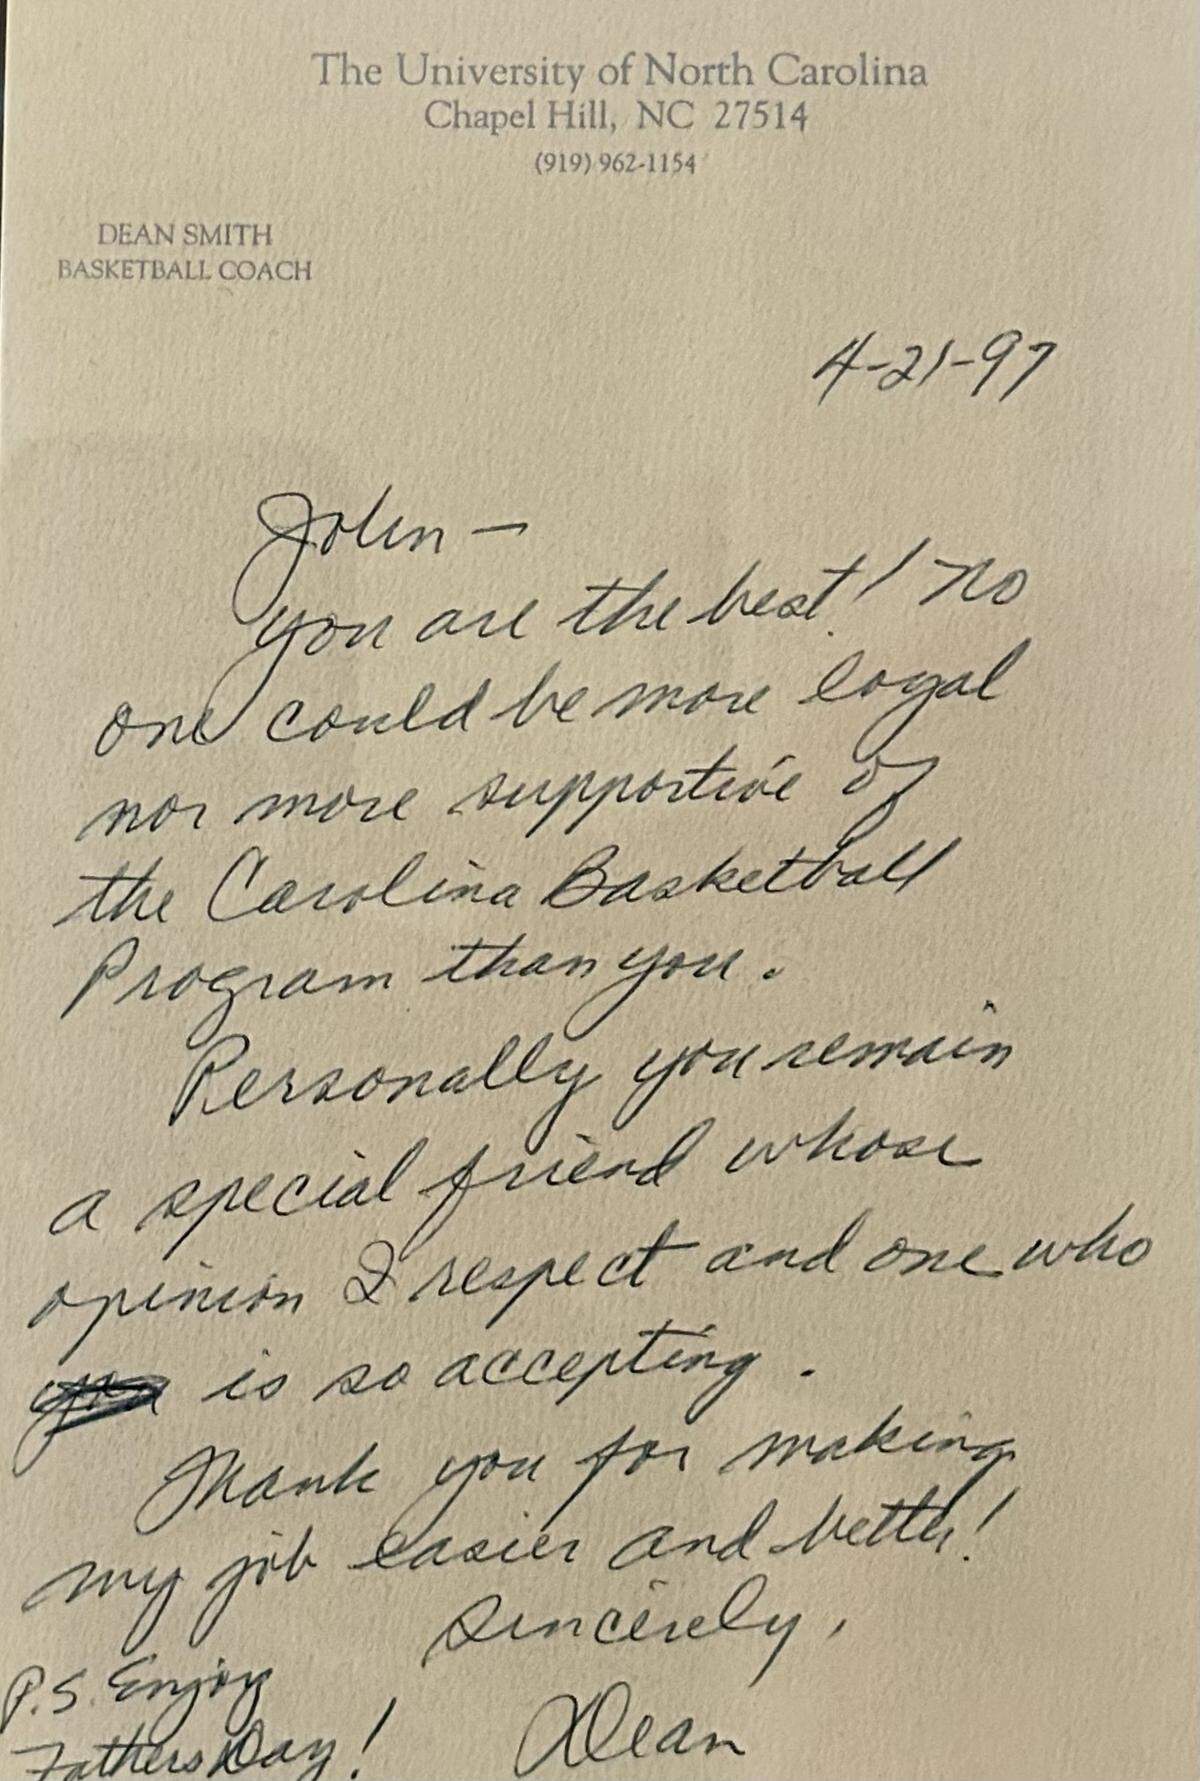 The University of North Carolina
Chapel Hill, NC 27514
(919) 962-1154
DEAN SMITH
BASKETBALL COACH
4-21-97
John —
you are the best! No
one could be more loyal
nor more supportive of
the Carolina Basketball
Program than you.
Personally you remain
a special friend whose
opinion I respect and one who
you is so accepting.
Thank you for making
my job easier and better!
Sincerely,
Dean
P.S. Enjoy
Fathers Day!